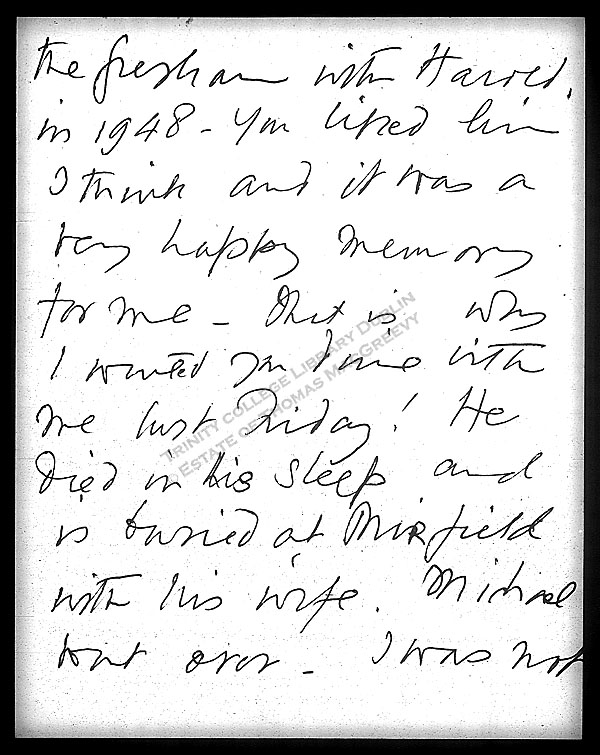 the Gresham with Harold.
in 1948 - You liked him
I think and it was a
very happy memory
for me - that is why
I wanted you dine with
me last Friday! He
died in his sleep and
is buried at Mirfield
with his wife. Michael
went over - I was not
TRINITY COLLEGE LIBRARY DUBLIN
ESTATE OF THOMAS MACGREEVY